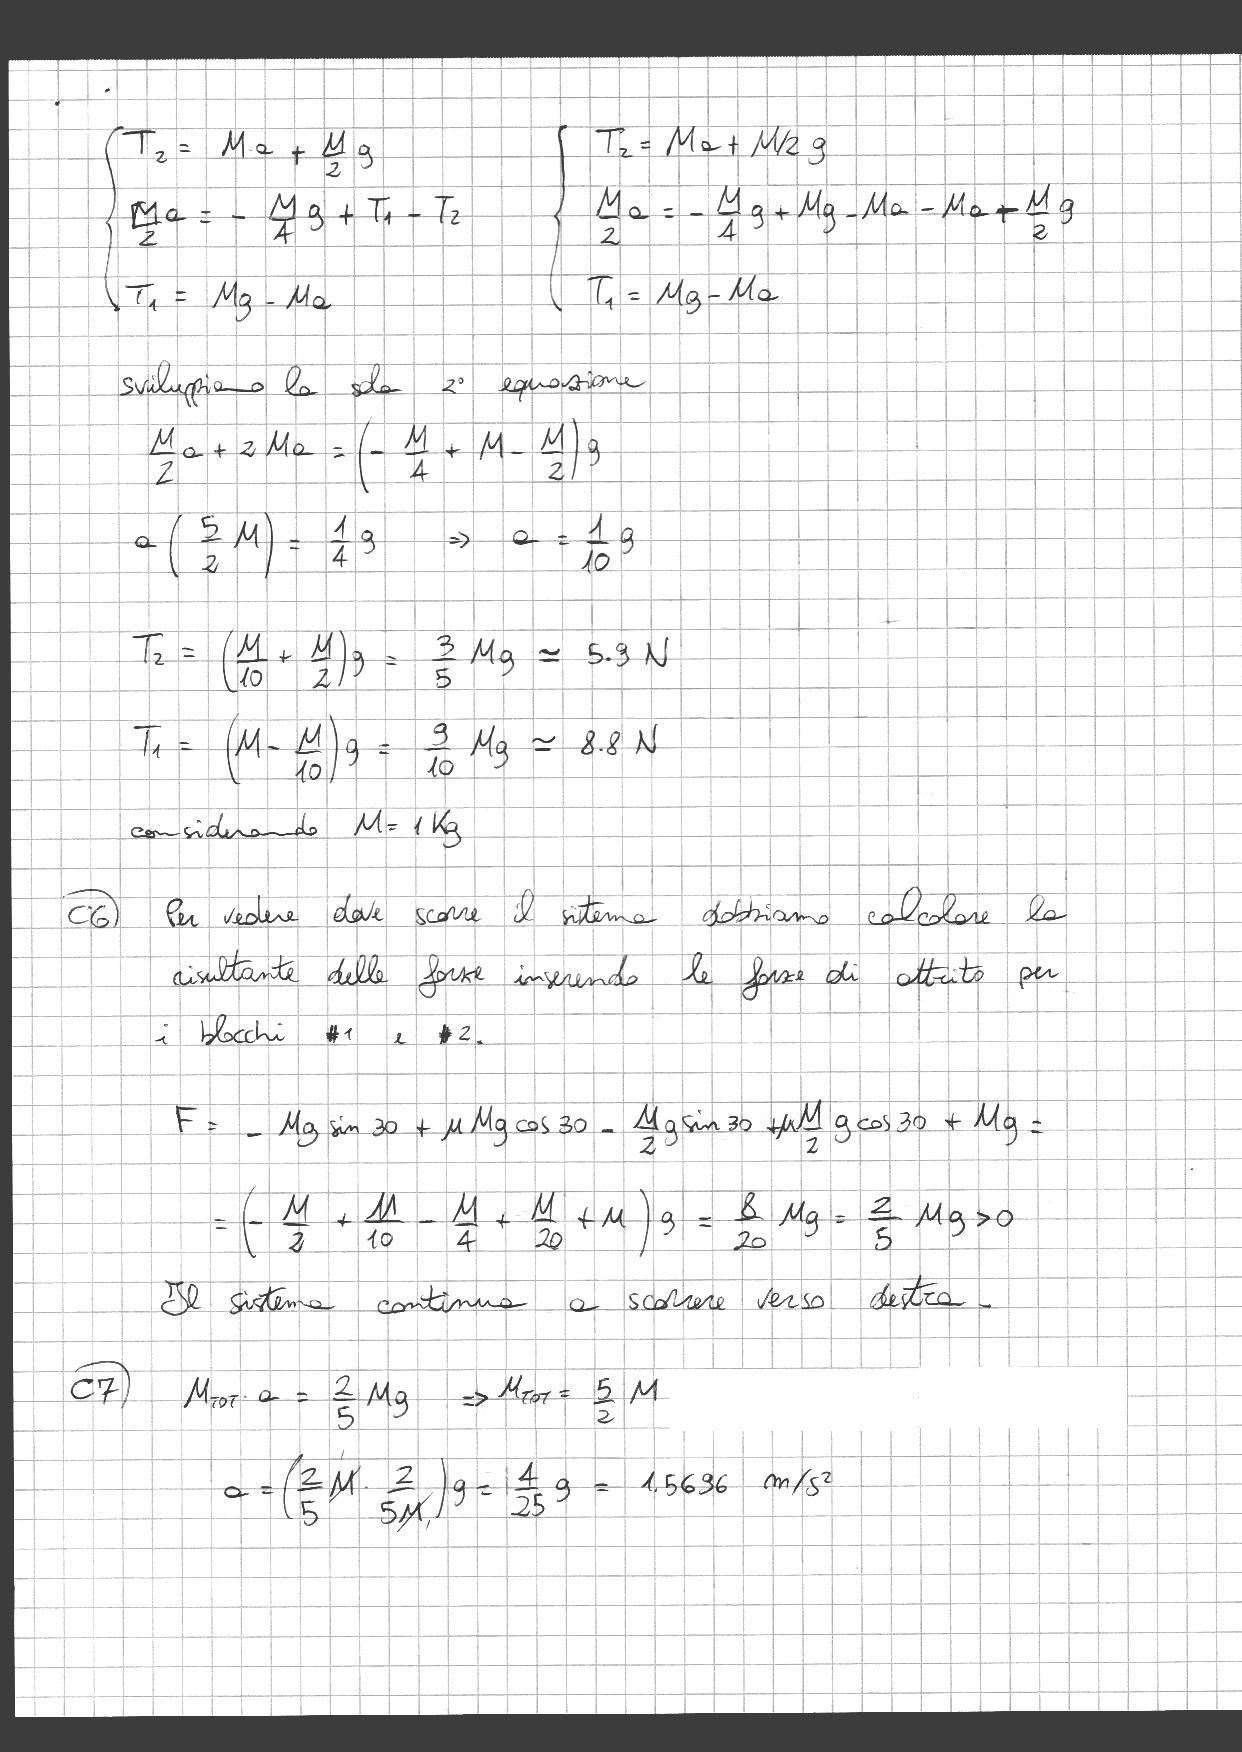 T₂ = Ma + M/2 g    T₂ = Ma + M/2 g
M/2 a = - M/4 g + T₁ - T₂    M/2 a = - M/4 g + Mg - Ma - Ma - M/2 g
T₁ = Mg - Ma    T₁ = Mg - Ma
sviluppiamo la sola 2° equazione
M/2 a + 2 Ma = (- M/4 + M - M/2) g
a (5/2 M) = 1/4 g ⇒ a = 1/10 g
T₂ = (M/10 + M/2) g = 3/5 Mg ≃ 5.9 N
T₁ = (M - M/10) g = 9/10 Mg ≃ 8.8 N
considerando M = 1 Kg
C6) Per vedere dove scorre il sitema dobbiamo calcolare la
risultante delle forze inserendo le forze di attrito per
i blocchi #1 e #2.
F = - Mg sin 30 + μ Mg cos 30 - M/2 g sin 30 + μ M/2 g cos 30 + Mg =
= (- M/2 + M/10 - M/4 + M/20 + M) g = 8/20 Mg = 2/5 Mg > 0
Il sistema continua a scorrere verso destra.
C7) M_TOT · a = 2/5 Mg ⇒ M_TOT = 5/2 M
a = (2/5 M · 2/5M) g = 4/25 g = 1.5696 m/s²